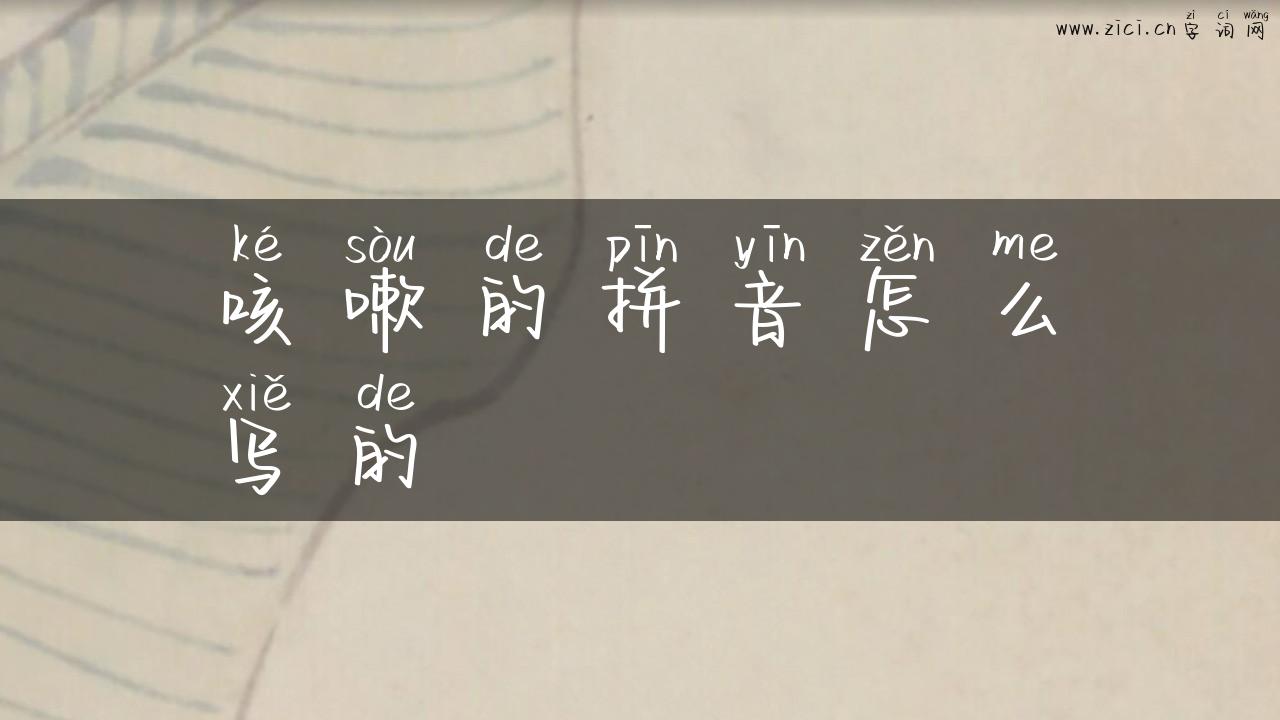 zì cí wǎng
www.zici.cn 字词网
ké sòu de pīn yīn zěn me
咳嗽的拼音怎么
xiě de
写的